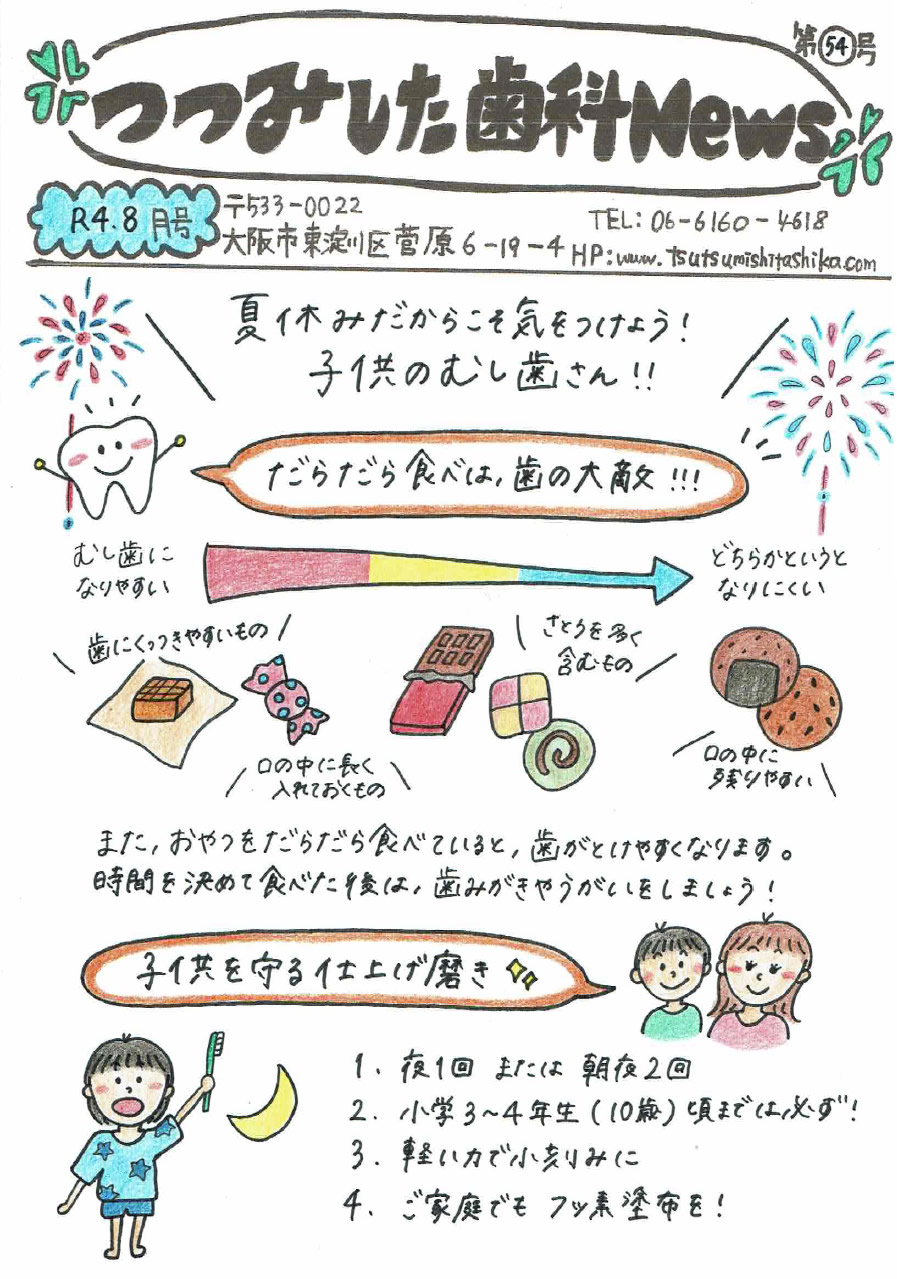 第54号
つつみした歯科News
R4.8月号
〒533-0022
大阪市東淀川区菅原6-19-4
TEL: 06-6160-4618
HP:www.tsutsumishitashika.com
夏休みだからこそ気をつけよう!
子供のむし歯さん!!
だらだら食べは,歯の大敵!!!
むし歯に
なりやすい
どちらかというと
なりにくい
歯にくっつきやすいもの
さとうを多く
含むもの
口の中に長く
入れておくもの
口の中に
残りやすい
また,おやつをだらだら食べていると,歯がとけやすくなります。
時間を決めて食べた後は,歯みがきやうがいをしましょう!
子供を守る仕上げ磨き
1. 夜1回 または 朝夜2回
2. 小学3~4年生(10歳)頃までは必ず!
3. 軽い力で小刻みに
4. ご家庭でも フッ素塗布を!